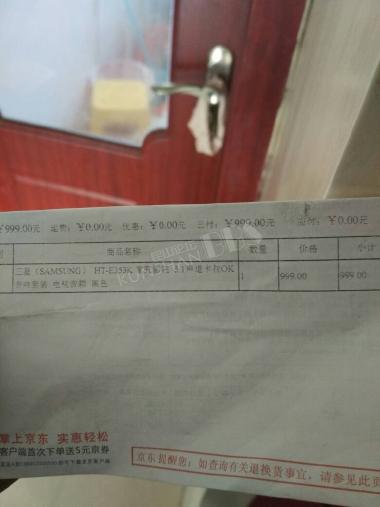 ¥999.00元 运费：¥0.00元 优惠：¥0.00元 已付：¥999.00元 应付：¥0.00元
商品名称 数量 价格 小计
三星（SAMSUNG） HT-E353K 家庭影院 5.1声道卡拉OK 1 999.00 999.00
音响套装 电视音箱 黑色
掌上京东 实惠轻松
客户端首次下单送5元京券
京东提醒您：如查询有关退换货事宜，请参见此页